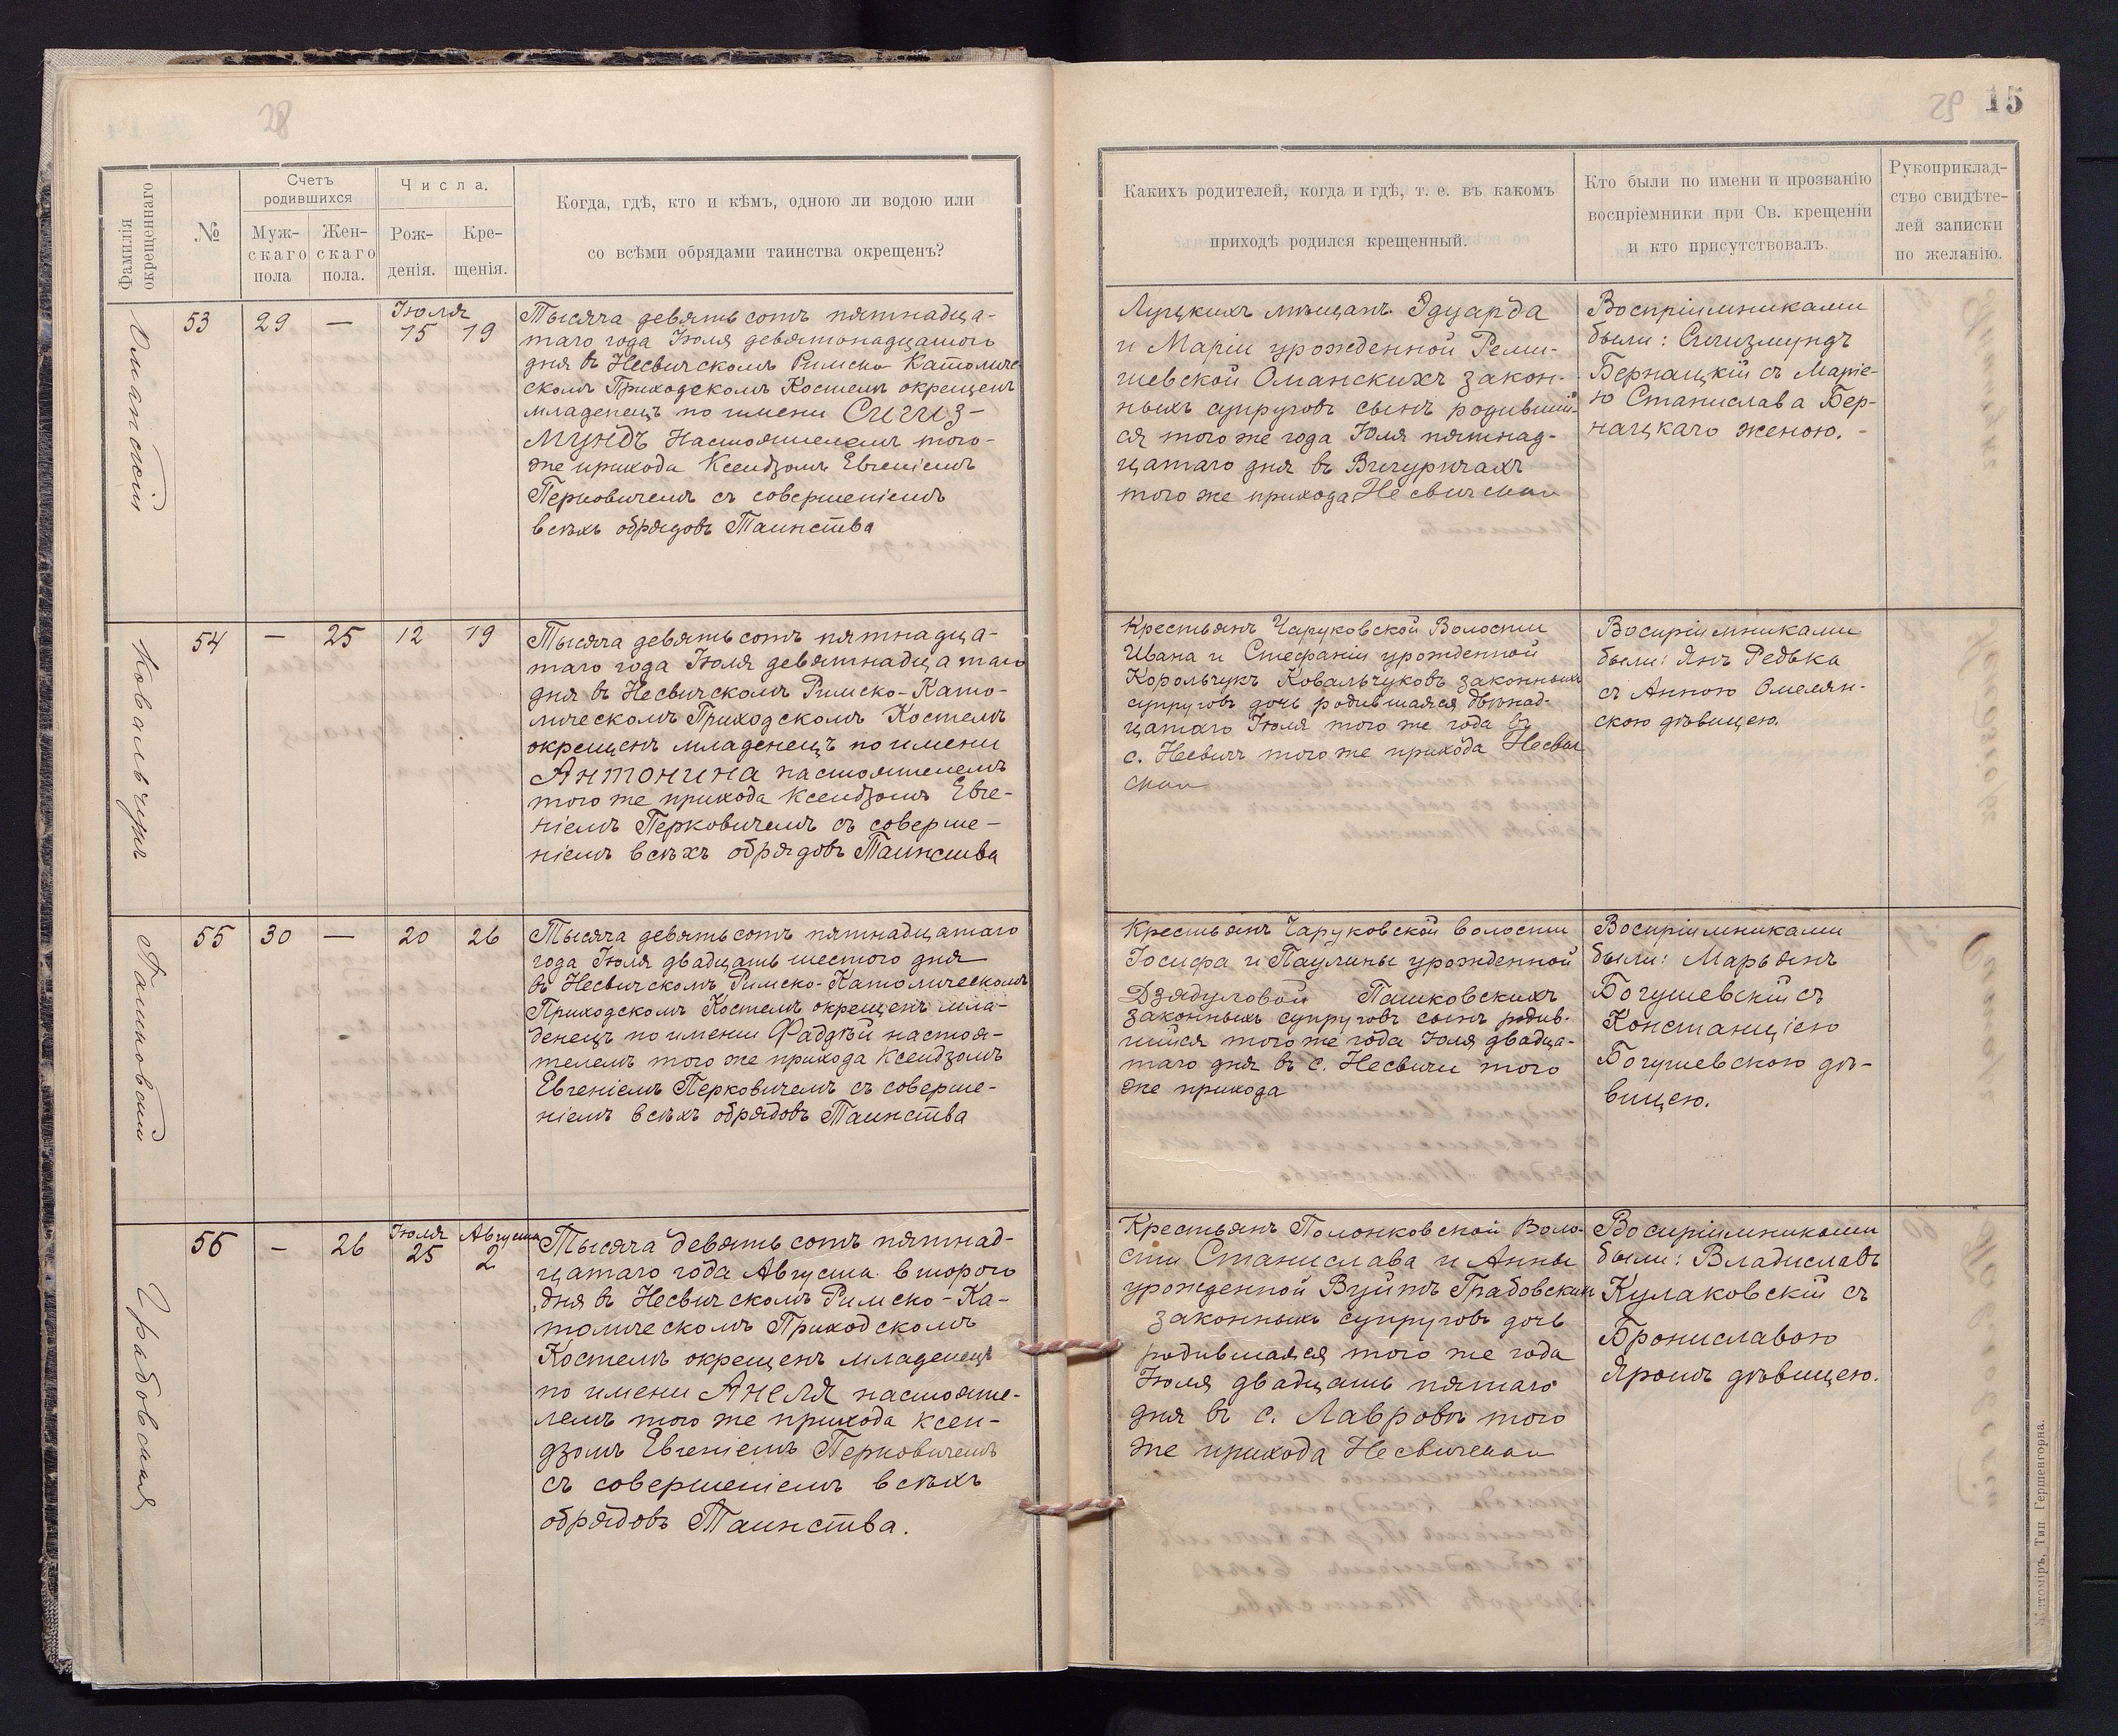 28
Фамилія
окрещеннаго
№
Счетъ
родившихся
Муж-
скаго
пола
Жен-
скаго
пола.
Числа.
Рож-
денія.
Кре-
щенія.
Когда, гдѣ, кто и кѣмъ, одною ли водою или
со всѣми обрядами таинства окрещенъ?
Оманскій
53
29
—
Іюля
15
19
Тысяча девятьсотъ пятнадца-
таго года Іюля девятонадцатого
дня въ Несвичскомъ Римско Католиче
скомъ Приходскомъ Костелѣ окрещенъ
младенецъ по имени Сигиз-
мундъ Настоятелемъ того-
же прихода Ксендзомъ Евгеніемъ
Перковичемъ съ совершеніемъ
всѣхъ обрядовъ Таинства
Ковальчукъ
54
—
25
12
19
Тысяча девятьсотъ пятнадца-
таго года Іюля девятнадцатаго
дня въ Несвичскомъ Римско-Като-
лическомъ Приходскомъ Костелѣ
окрещенъ младенецъ по имени
Антонина настоятелемъ
того же прихода Ксендзомъ Евге-
ніемъ Перковичемъ съ соверше-
ніемъ всѣхъ обрядовъ Таинства
Пашковскій
55
30
—
20
26
Тысяча девятьсотъ пятнадцатаго
года Іюля двадцать шестого дня
въ Несвичскомъ Римско-Католическомъ
Приходскомъ Костелѣ окрещенъ мла-
денецъ по имени Фаддѣй настоя-
телемъ того же прихода Ксендзомъ
Евгеніемъ Перковичемъ съ соверше-
ніемъ всѣхъ обрядовъ Таинства
Грабовская
56
-
26
Іюля
25
Августа
2
Тысяча девятьсотъ пятнад-
цатаго года Августа второго
дня въ Несвичскомъ Римско-Ка-
толическомъ Приходскомъ
Костелѣ окрещенъ младенецъ
по имени Анеля настояте-
лемъ того же прихода ксен-
дзомъ Евгеніемъ Перковичемъ
съ совершеніемъ всѣхъ
обрядовъ Таинства.
15
Какихъ родителей, когда и гдѣ, т. е. въ какомъ
приходѣ родился крещенный.
Кто были по имени и прозванію
воспріемники при Св. крещеніи
и кто присутствовалъ.
Рукоприклад-
ство свидѣте-
лей записки
по желанію.
Луцкихъ мѣщанъ Эдуарда
и Маріи урожденной Реми-
шевской Оманскихъ закон-
ныхъ супруговъ сынъ родивший-
ся того же года Юля пятнад-
цатаго дня въ Вигуричахъ
того же прихода Несвичскаи
Воспріимниками
были: Сигизмундъ
Бернацкій съ Маріе-
ю Станислава Бер-
нацкаго женою. -
Крестьянъ Чаруковской Волости
Ивана и Стефаніи урожденной
Корольчукъ Ковальчуковъ законныхъ
супруговъ дочь родившаяся двѣнад-
цатаго Іюля того же года въ
с. Несвичъ того же прихода Несвич
скаи
Воспріимниками
были: Янъ Редька
съ Анною Омелян-
скою дѣвицею.
Крестьянъ Чаруковской волости
Іосифа и Паулины урожденной
Дзядуловой Пашковскихъ
законныхъ супруговъ сынъ родив-
шійся того же года Іюля двадца-
таго дня въ с. Несвичи того
же прихода
Воспріимниками
были: Марьянъ
Богушевскій съ
Констанціею
Богушевскою дѣ-
вицею.
Крестьянъ Полонковской Воло-
сти Станислава и Анны
урожденной Вуйтъ Грабовскихъ
законныхъ супруговъ дочь
родившаяся того же года
Іюля двадцать пятаго
дня въ с. Лавровъ того
же прихода Несвичскаи
Воспріимниками
были: Владиславъ
Кулаковскій съ
Брониславою
Яромъ дѣвицею.
Житоміръ, Тип Гершенгорна.